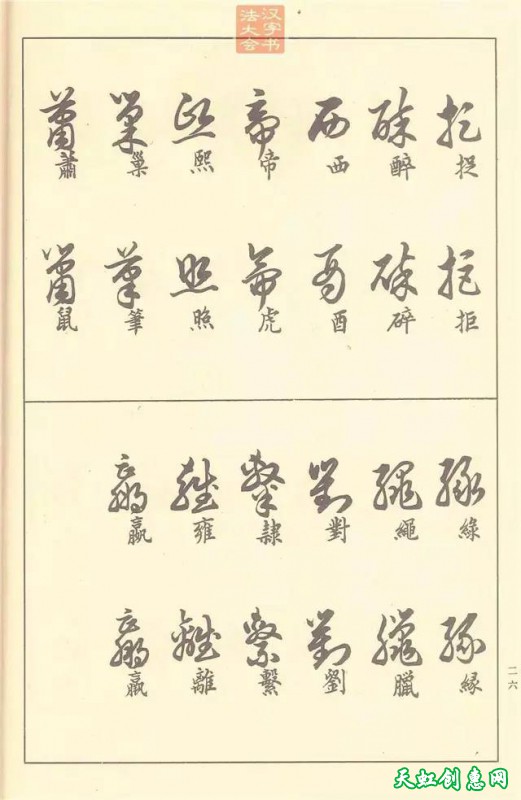 汉字书
法大会
捉
拒
醉
碎
西
酉
帝
虎
熙
照
巢
筆
蕭
鼠
綠
緣
繩
臘
對
劉
隸
繫
雍
離
嬴
羸
二六
天虹创惠网